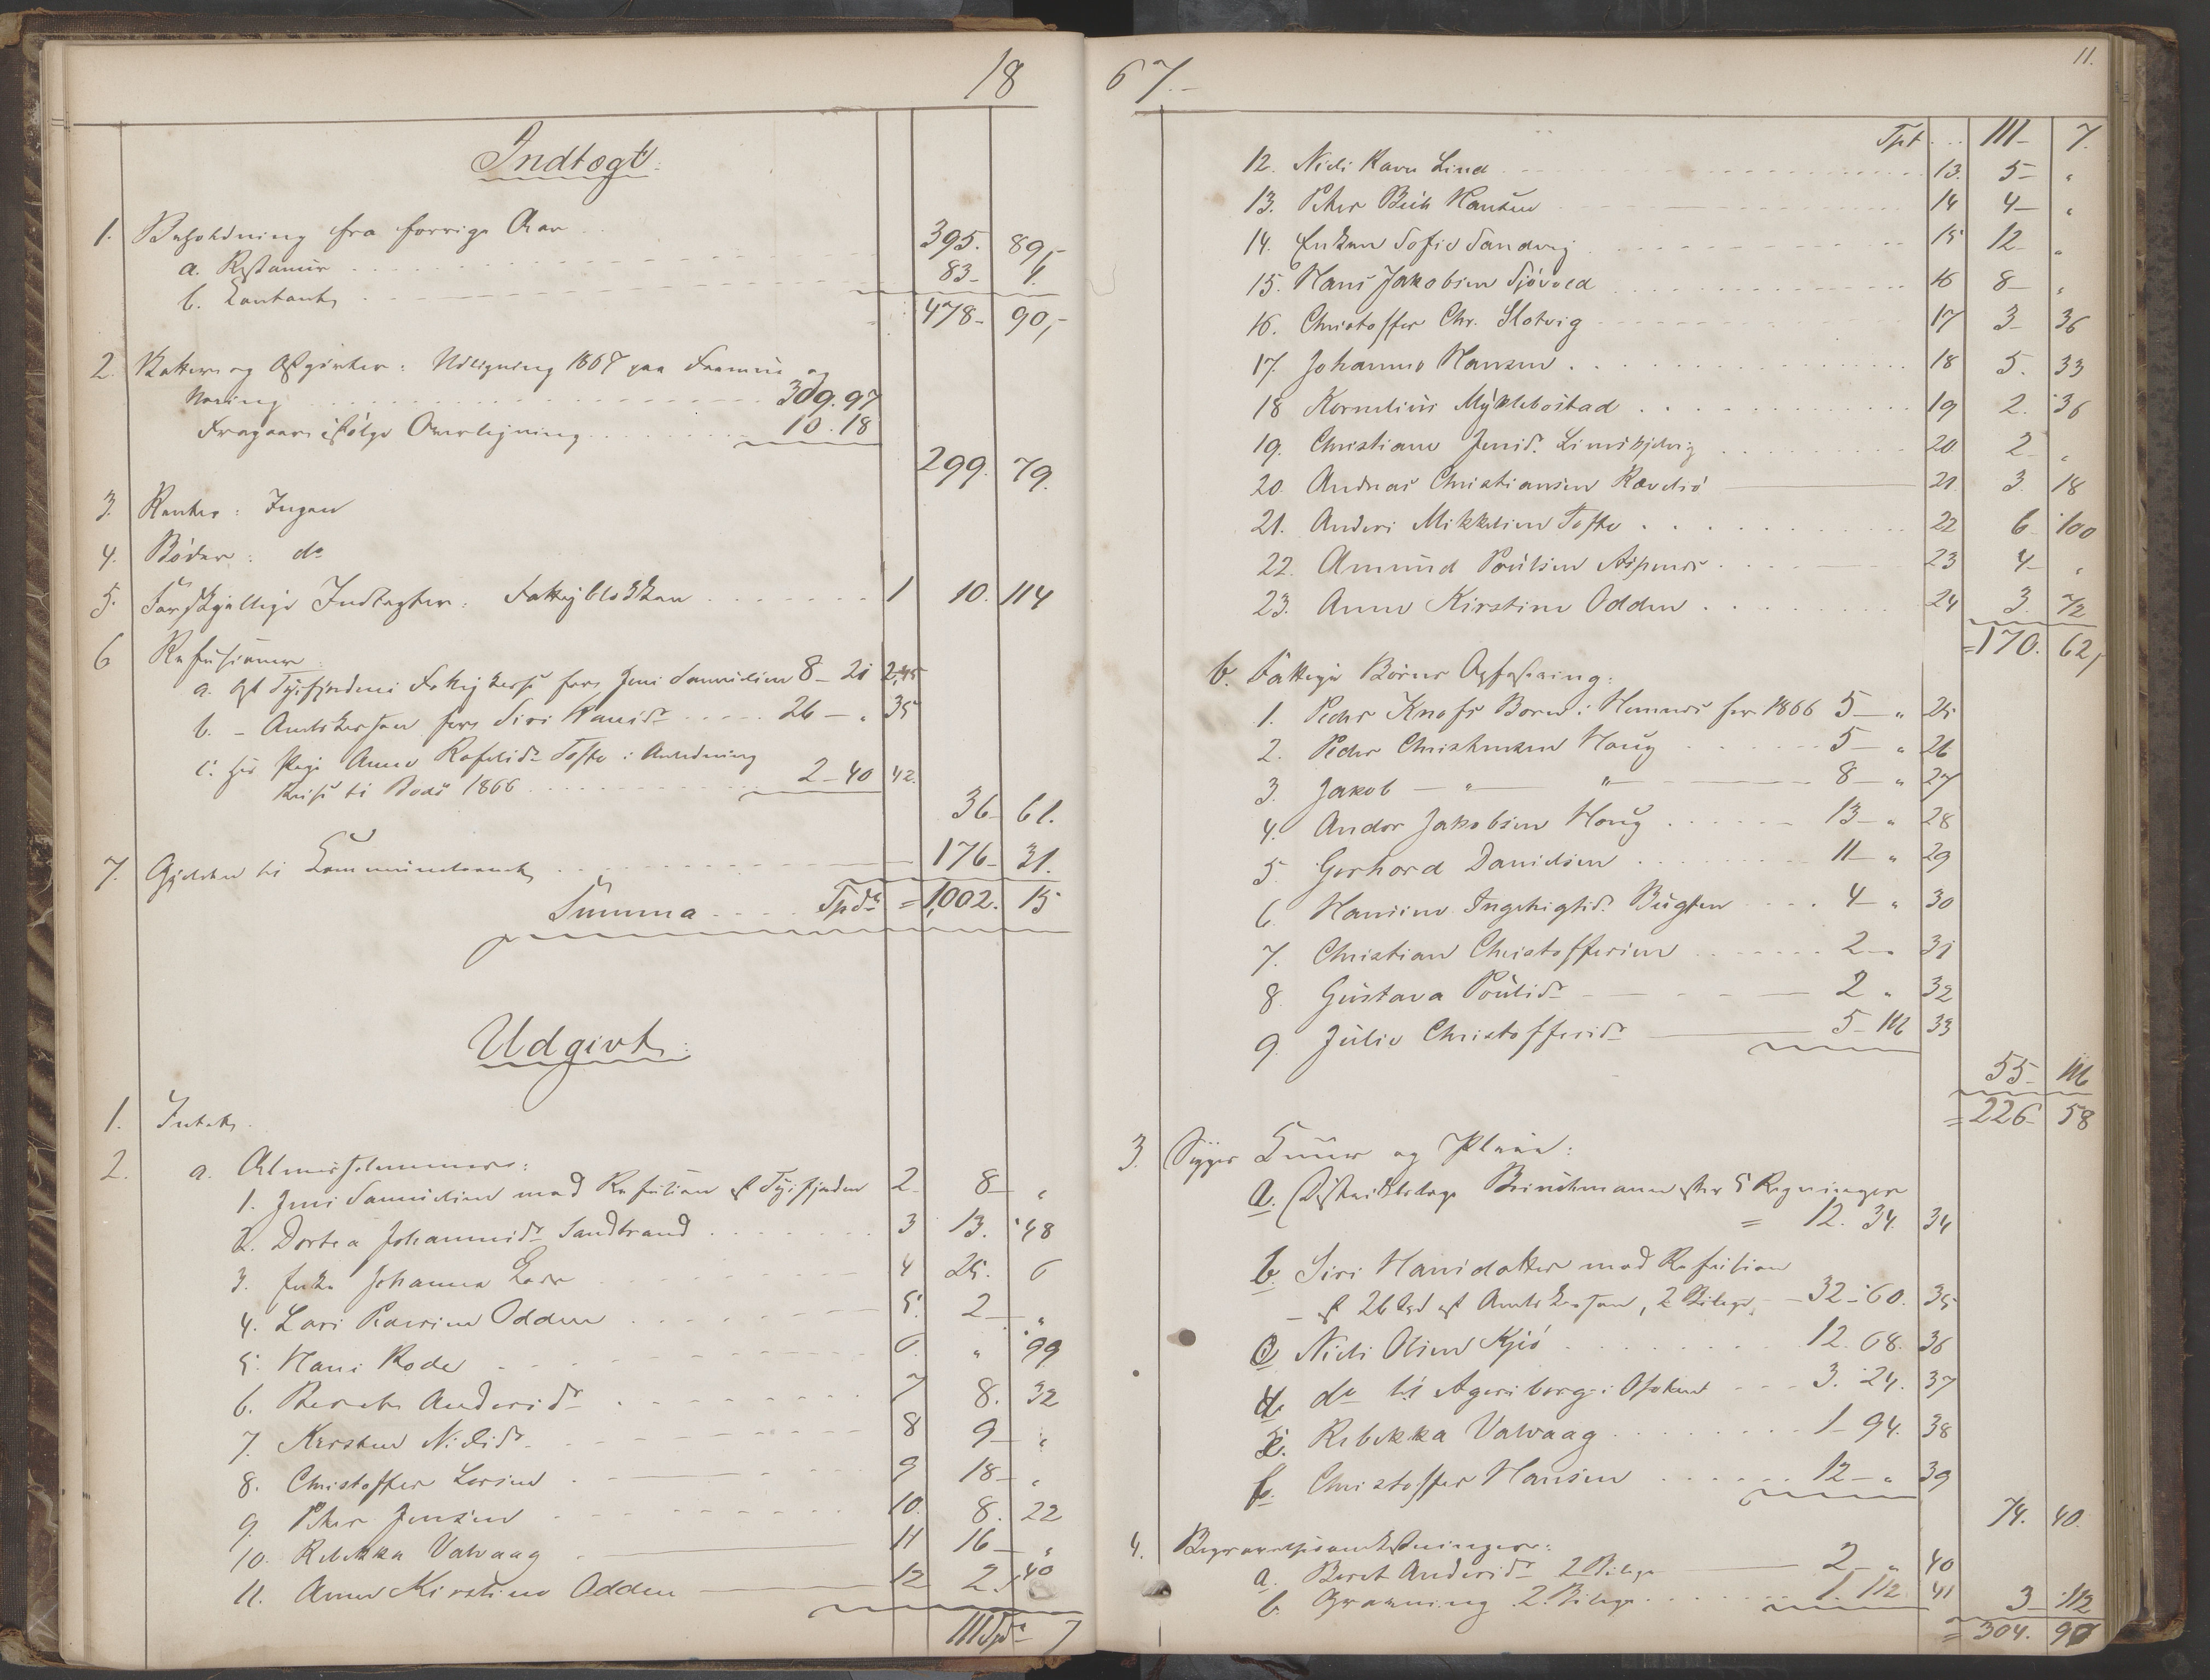 18
Indtægt:
1. Beholdning fra forrige Aar
a. Restancer 395. 89,-
b. Contant 83- 1.
478- 90,-
2. Skatter og Afgivter: Udligning 1867 paa Formue og
Næring 309.97
Fragaar ifølge Overligning 10.18
299. 79.
3. Renter: Ingen
4. Bøder: do
5. Forskjællige Indtægter: Fattigblokken 1 10. 114
6 Refusioner
a. af Tysfjordens Fattigkasse for Jens Samuelsen 8- 21 2,
b. - Amtskassen for Siri Hansdr 26 - " 35
c. hos Pige Anne Rafelsdr Tofte i Anledning
Reise til Bodø 1866 2-40 42.
36- 61.
7. Gjelden til Communekassen 176- 31.
Summa Spdr = 1,002. 15
Udgivt:
1. Intet.
2. a. Almisselemmer:
1. Jens Samuelsen mod Refusion af Tysfjorden 2 8- "
2. Dortea Johannesdr Sandstrand 3 13. 48
3. Enke Johanna 4 25. 6
4. Lars Pedersen Odden 5. 2- "
5. Hans Rode 6. " 99
6. Beret Andersdr 7 8. 32
7. Kersten Nielsdr 8 9- "
8. Christoffer Larsen 9 18- "
9. Peter Jensen 10. 8. 22
10. Rebekka Valvaag 11 16- "
11. Anne Kirstine Odden 12 2. 40
111 Spdr 7
67.-
11.
Tpt 111- 7.
12. Niels Ravn Lind 13. 5- "
13. Peter Beck Hansen 14 4- "
14. Enken Sofie Sandvig 15 12- "
15. Hans Jakobsen Sjøvold 16 8- "
16. Christoffer Chr. Slotvig 17 3- 36
17. Johannes Hansen 18 5. 33
18 Kornelius Myklebostad 19 2. 36
19. Christiane Jensdr. 20 2- "
20. Andreas Christiansen 21 3. 18
21. Anders Mikkelsen Tofte 22 6. 100
22. Amund Poulsen 23 4- "
23. Anne Kirstine Odden 24 3. 72
= 170. 62,
b. Fattige Børns Opfostring:
1. Peder Knofs Barn i Hemnes for 1866 5- " 25
2. Peder Christensen Haug 5- " 26
3. Jakob - " - " - 8- " 27
4. Andor Jakobsen Haug 13- " 28
5. Gerhard Danielsen 11- " 29
6. Hansine Ingebrigtsdr. Bugten 4- " 30
7. Christian Christoffersen 2- " 31
8. Gustava Poulsdr 2 " 32
9. Julie Christoffersdr 5- 116 33
55- 116
= 226- 58
3. Syges Cuur og Pleie:
a. Distriktslæge Brinchmann efter 5 Regninger
= 12. 34. 34
b. Siri Hansdatter mod Refusion
- af 26 Spd af Amtskassen, 2 Bilage 32-60. 35
c Niels Olsen Kjeø 12. 68. 36
d. do til i Ofoten 3. 24. 37
e. Rebekka Valvaag 1- 94. 38
f. Christoffer Hansen 12- " 39
74. 40.
4. Begravelsesomkostninger:
a. Beret Andersdr 2 Bilage 2- " 40
b. 2 Bilage 1. 112 41
3- 112
= 304. 90